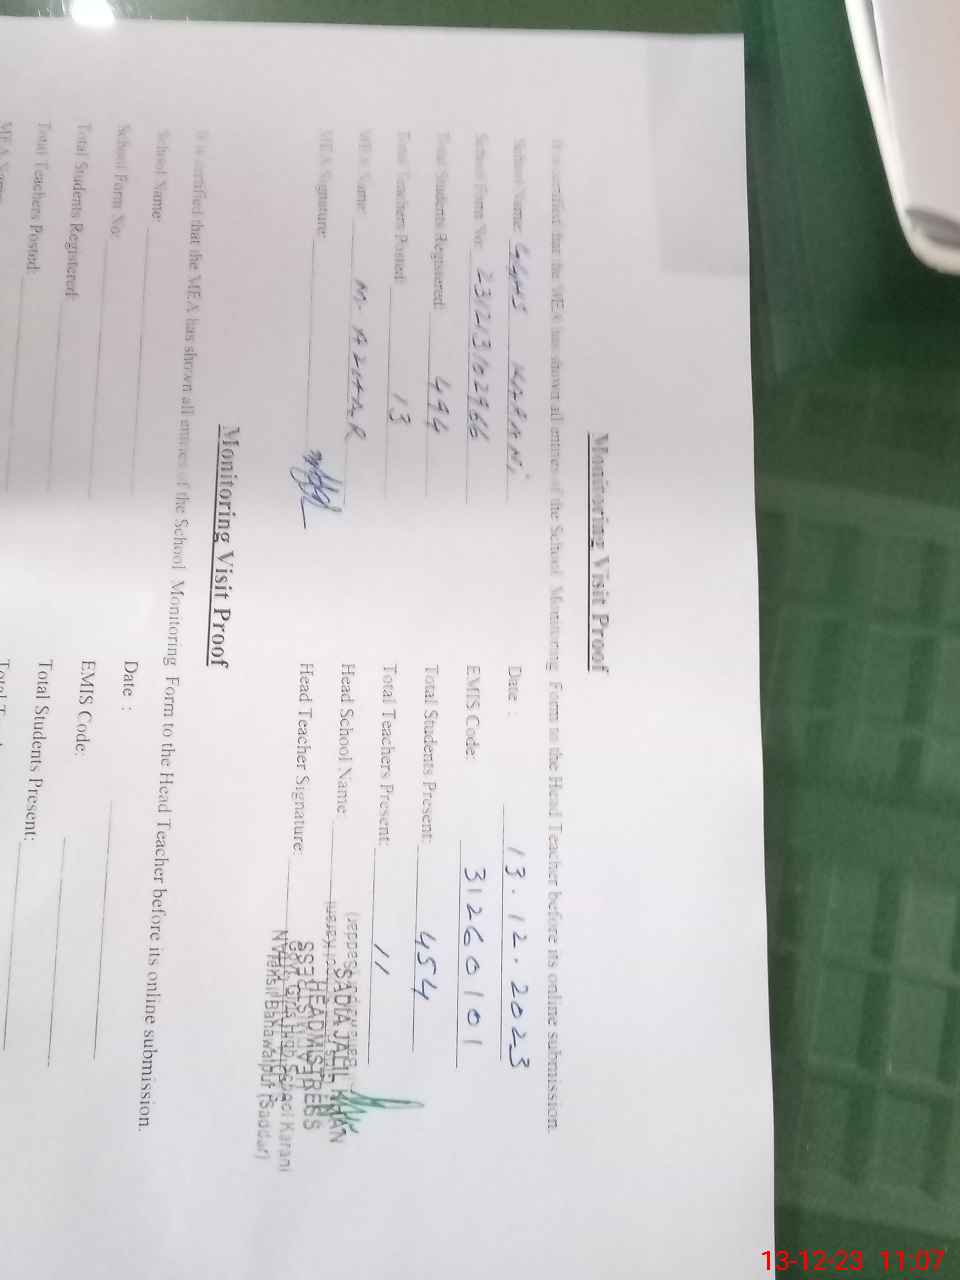 Monitoring Visit Proof
It is certified that the MEA has shown all entries of the School Monitoring Form to the Head Teacher before its online submission.
School Name: GGHS KARANI Date : 13.12.2023
School Form No: 231213102966 EMIS Code: 31260101
Total Students Registered: 494 Total Students Present: 454
Total Teachers Posted: 13 Total Teachers Present: 11
MEA Name: M. AZHAR Head School Name:
MEA Signature: Head Teacher Signature:
SADIA JALIL KHAN
HEADMISTRESS
Govt. Girls High School Karani
Tehsil Bahawalpur (Saddar)
Monitoring Visit Proof
It is certified that the MEA has shown all entries of the School Monitoring Form to the Head Teacher before its online submission.
School Name: Date :
School Form No: EMIS Code:
Total Students Registered: Total Students Present:
Total Teachers Posted:
MEA Name
13-12-23 11:07